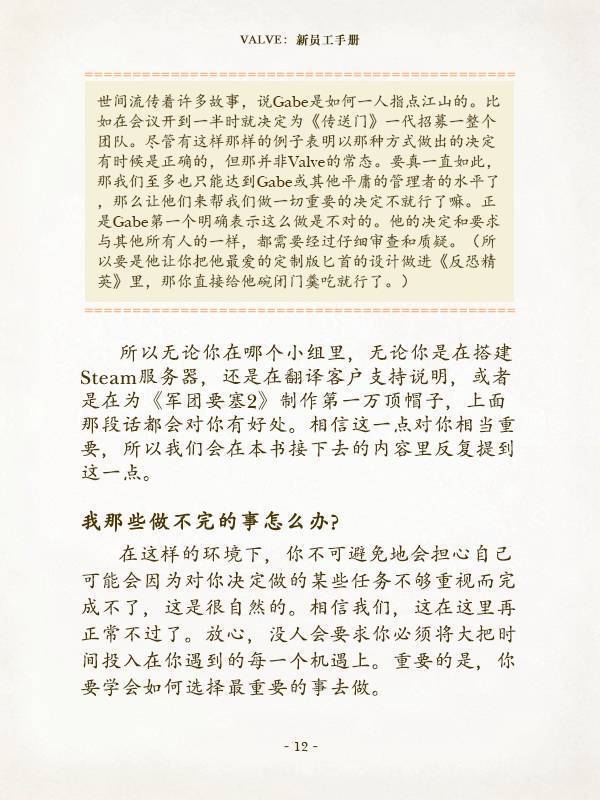 VALVE：新员工手册
世间流传着许多故事，说Gabe是如何一人指点江山的。比
如在会议开到一半时就决定为《传送门》一代招募一整个
团队。尽管有这样那样的例子表明以那种方式做出的决定
有时候是正确的，但那并非Valve的常态。要真一直如此，
那我们至多也只能达到Gabe或其他平庸的管理者的水平了
，那么让他们来帮我们做一切重要的决定不就行了嘛。正
是Gabe第一个明确表示这么做是不对的。他的决定和要求
与其他所有人的一样，都需要经过仔细审查和质疑。（所
以要是他让你把他最爱的定制版匕首的设计做进《反恐精
英》里，那你直接给他碗闭门羹吃就行了。）
所以无论你在哪个小组里，无论你是在搭建
Steam服务器，还是在翻译客户支持说明，或者
是在为《军团要塞2》制作第一万顶帽子，上面
那段话都会对你有好处。相信这一点对你相当重
要，所以我们会在本书接下去的内容里反复提到
这一点。
我那些做不完的事怎么办?
在这样的环境下，你不可避免地会担心自己
可能会因为对你决定做的某些任务不够重视而完
成不了，这是很自然的。相信我们，这在这里再
正常不过了。放心，没人会要求你必须将大把时
间投入在你遇到的每一个机遇上。重要的是，你
要学会如何选择最重要的事去做。
- 12 -